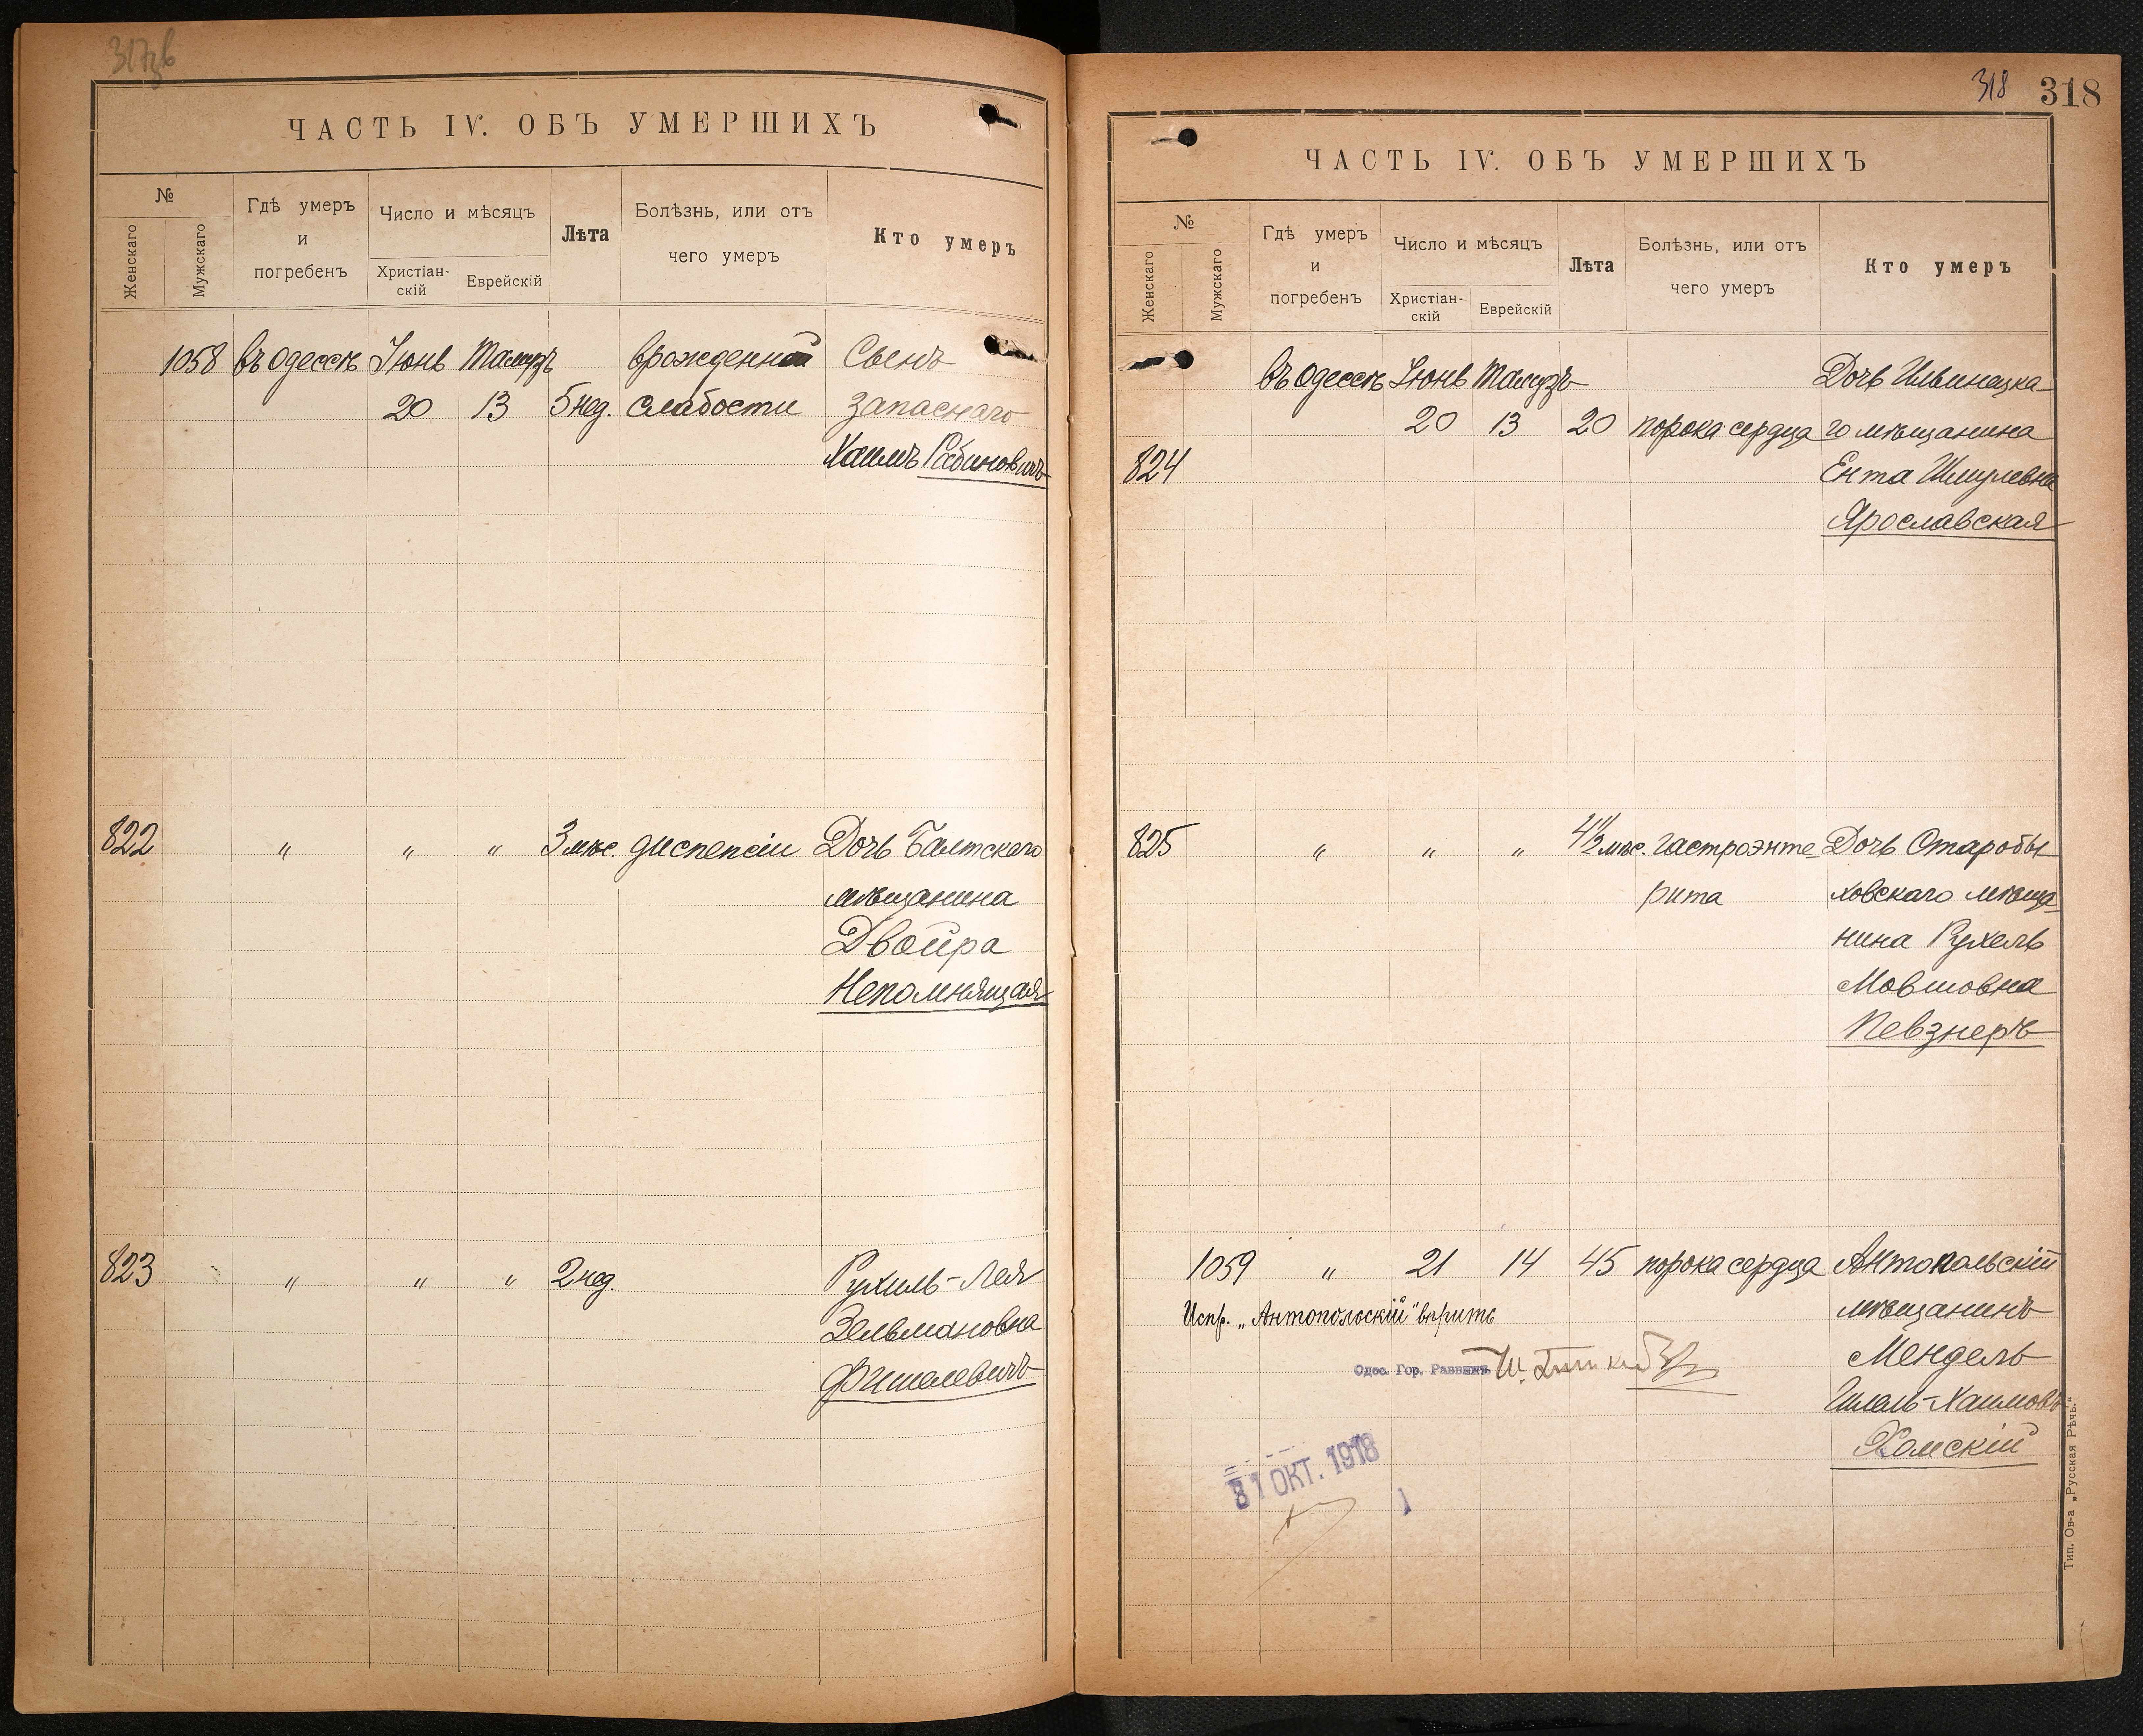 ЧАСТЬ IV. ОБЪ УМЕРШИХЪ
№
Женскаго
Мужскаго
Гдѣ умеръ
и
погребенъ
Число и мѣсяцъ
Христіан-
скій
Еврейскій
Лѣта
Болѣзнь, или отъ
чего умеръ
Кто умеръ
1058 въ Одессѣ Іюнь Тамузъ врожденной Сынъ
20 13 5 нед. слабости запаснаго
Хаимъ Рабиновичъ
822 " " " 3 мѣс. диспепсіи Дочь Балтскаго
мѣщанина
Двойра
Непомнящая
823 " " " 2 нед. Рухиль-Лея
Зельмановна
Фишелевичъ
318 318
ЧАСТЬ IV. ОБЪ УМЕРШИХЪ
№
Женскаго
Мужскаго
Гдѣ умеръ
и
погребенъ
Число и мѣсяцъ
Христіан-
скій
Еврейскій
Лѣта
Болѣзнь, или отъ
чего умеръ
Кто умеръ
въ Одессѣ Іюнь Тамузъ Дочь Ильинецка-
20 13 20 порока сердца го мѣщанина
824 Ента Шмулевна
Ярославская
825 " " " 4½ мѣс. гастроэнте- Дочь Старобы-
рита ховскаго мѣща-
нина Рухель
Мовшовна
Певзнеръ
1059 " 21 14 45 порока сердца Антопольскій
Испр. „Антопольскій" вѣрить мѣщанинъ
Одес. Гор. Раввинъ Мендель
Шлема-Хаимовъ
Хомскій
31 ОКТ. 1918
Тип. Ов-а „Русская Рѣчь."